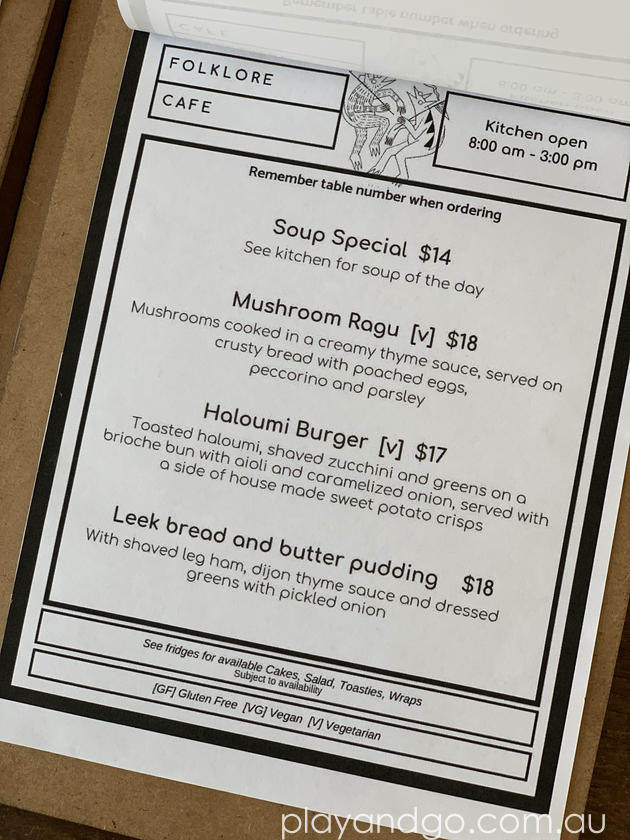 Remember table number when ordering
CAFE
8:00 am - 3:00 pm
FOLKLORE
CAFE
Kitchen open
8:00 am - 3:00 pm
Remember table number when ordering
Soup Special $14
See kitchen for soup of the day
Mushroom Ragu [v] $18
Mushrooms cooked in a creamy thyme sauce, served on
crusty bread with poached eggs,
peccorino and parsley
Haloumi Burger [v] $17
Toasted haloumi, shaved zucchini and greens on a
brioche bun with aioli and caramelized onion, served with
a side of house made sweet potato crisps
Leek bread and butter pudding $18
With shaved leg ham, dijon thyme sauce and dressed
greens with pickled onion
See fridges for available Cakes, Salad, Toasties, Wraps
Subject to availability
[GF] Gluten Free [VG] Vegan [V] Vegetarian
playandgo.com.au